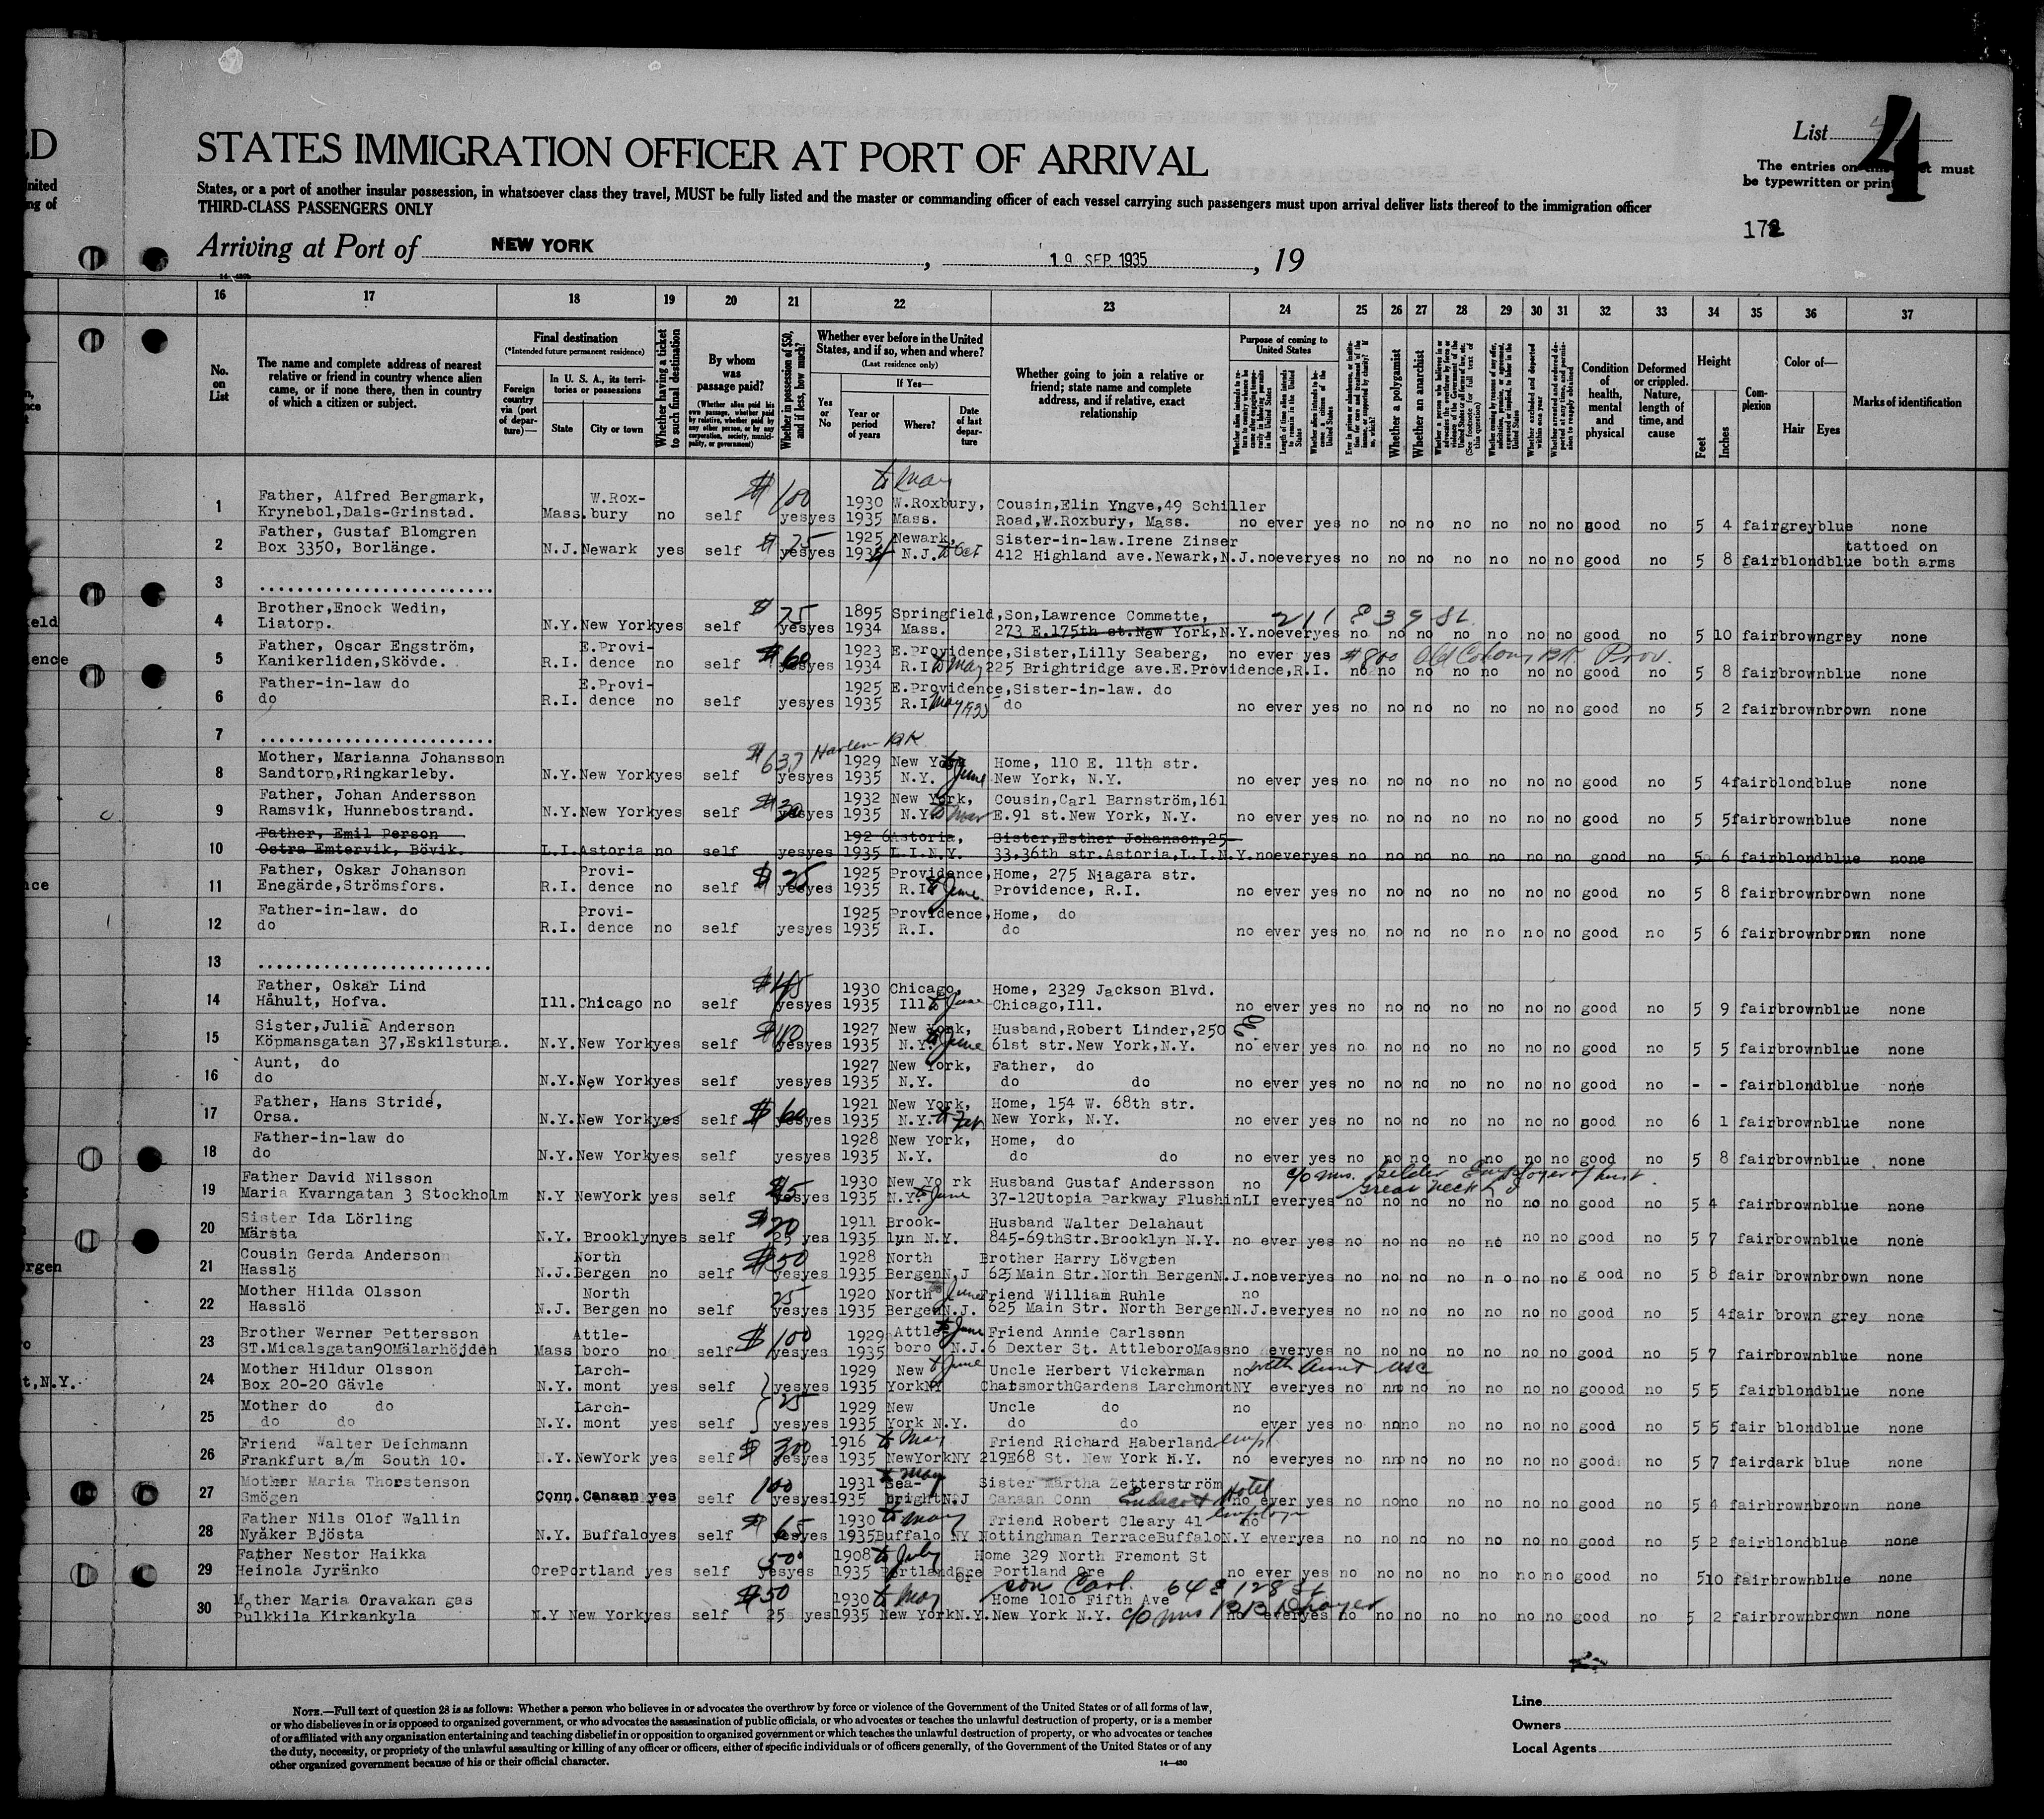 ED
nited
ng of
List
4
The entries on this sheet must
be typewritten or printed
STATES IMMIGRATION OFFICER AT PORT OF ARRIVAL
States, or a port of another insular possession, in whatsoever class they travel, MUST be fully listed and the master or commanding officer of each vessel carrying such passengers must upon arrival deliver lists thereof to the immigration officer
THIRD-CLASS PASSENGERS ONLY
172
Arriving at Port of NEW YORK , 19 SEP 1935 , 19
16 17 18 19 20 21 22 23 24 25 26 27 28 29 30 31 32 33 34 35 36 37
No. on List
The name and complete address of nearest relative or friend in country whence alien came, or if none there, then in country of which a citizen or subject.
Final destination
(*Intended future permanent residence)
Foreign country via (port of departure)—
In U. S. A., its territories or possessions
State City or town
Whether having a ticket to such final destination
By whom was passage paid?
(Whether alien paid his own passage, whether paid by relative, whether paid by any other person, or by any corporation, society, municipality, or government)
Whether in possession of $50, and if less, how much?
Whether ever before in the United States, and if so, when and where?
(Last residence only)
Yes or No
If Yes—
Year or period of years Where? Date of last departure
Whether going to join a relative or friend; state name and complete address, and if relative, exact relationship
Purpose of coming to United States
Whether a polygamist
Whether an anarchist
Condition of health, mental and physical
Deformed or crippled. Nature, length of time, and cause
Height
Feet Inches
Complexion
Color of—
Hair Eyes
Marks of identification
to May
1 Father, Alfred Bergmark, W.Rox- $100 1930 W.Roxbury, Cousin,Elin Yngve,49 Schiller
Krynebol,Dals-Grinstad. Mass. bury no self yes yes 1935 Mass. Road,W.Roxbury, Mass. no ever yes no no no no no no no good no 5 4 fair grey blue none
2 Father, Gustaf Blomgren $25 1925 Newark, Sister-in-law.Irene Zinser tattoed on
Box 3350, Borlänge. N.J. Newark yes self yes yes 1934 N.J. to Oct 412 Highland ave.Newark,N.J. no ever yes no no no no no no no good no 5 8 fair blond blue both arms
3 ..........................
4 Brother,Enock Wedin, $25 1895 Springfield, Son,Lawrence Commette, 211 E 39 St.
Liatorp. N.Y. New York yes self yes yes 1934 Mass. 273 E.175th st.New York,N.Y. no ever yes no no no no no no no good no 5 10 fair brown grey none
5 Father, Oscar Engström, E.Provi- $60 1923 E.Providence, Sister,Lilly Seaberg, no ever yes $800 Old Colony BK. Prov.
Kanikerliden,Skövde. R.I. dence no self yes yes 1934 R.I. to May 225 Brightridge ave.E.Providence,R.I. no no no no no no no good no 5 8 fair brown blue none
6 Father-in-law do E.Provi- 1925 E.Providence, Sister-in-law. do
do R.I. dence no self yes yes 1935 R.I. May 1935 do no ever yes no no no no no no no good no 5 2 fair brown brown none
7 ..........................
$637 Harlem BK
8 Mother, Marianna Johansson 1929 New York Home, 110 E. 11th str.
Sandtorp,Ringkarleby. N.Y. New York yes self yes yes 1935 N.Y. to June New York, N.Y. no ever yes no no no no no no no good no 5 4 fair blond blue none
9 Father, Johan Andersson $30 1932 New York, Cousin,Carl Barnström,161
Ramsvik, Hunnebostrand. N.Y. New York yes self yes yes 1935 N.Y. to Mar E.91 st.New York, N.Y. no ever yes no no no no no no no good no 5 5 fair brown blue none
10 Father, Emil Person 192 6 Astoria, Sister,Esther Johanson,25-
Ostra Emtervik, Bövik. L.I. Astoria no self yes yes 1935 L.I.N.Y. 33,36th str.Astoria,L.I.N.Y. no ever yes no no no no no no no good no 5 6 fair blond blue none
11 Father, Oskar Johanson Provi- $25 1925 Providence, Home, 275 Niagara str.
Enegärde,Strömsfors. R.I. dence no self yes yes 1935 R.I. to June Providence, R.I. no ever yes no no no no no no no good no 5 8 fair brown brown none
12 Father-in-law. do Provi- 1925 Providence, Home, do
do R.I. dence no self yes yes 1935 R.I. do no ever yes no no no no no no no good no 5 6 fair brown brown none
13 ..........................
14 Father, Oskar Lind 1930 Chicago, Home, 2329 Jackson Blvd.
Håhult, Hofva. Ill. Chicago no self yes yes 1935 Ill. to June Chicago,Ill. no ever yes no no no no no no no good no 5 9 fair brown blue none
15 Sister,Julia Anderson 1927 New York, Husband,Robert Linder,250 E.
Köpmansgatan 37,Eskilstuna. N.Y. New York yes self yes yes 1935 N.Y. to June 61st str.New York,N.Y. no ever yes no no no no no no no good no 5 5 fair brown blue none
16 Aunt, do 1927 New York, Father, do
do N.Y. New York yes self yes yes 1935 N.Y. do do no ever yes no no no no no no no good no - - fair blond blue none
17 Father, Hans Stride, $60 1921 New York, Home, 154 W. 68th str.
Orsa. N.Y. New York yes self yes yes 1935 N.Y. to Feb New York, N.Y. no ever yes no no no no no no no good no 6 1 fair brown blue none
18 Father-in-law do 1928 New York, Home, do
do N.Y. New York yes self yes yes 1935 N.Y. do do no ever yes no no no no no no no good no 5 8 fair brown blue none
19 Father David Nilsson 1930 New York Husband Gustaf Andersson no c/o Mrs. Gelder Employer of husb. Great Neck L I
Maria Kvarngatan 3 Stockholm N.Y NewYork yes self yes yes 1935 N.Y. to June 37-12Utopia Parkway FlushinLI ever yes no no no no no no no good no 5 4 fair brown blue none
20 Sister Ida Lörling $20 1911 Brook- Husband Walter Delahaut
Märsta N.Y. Brooklyn yes self 25 yes 1935 lyn N.Y. 845-69thStr.Brooklyn N.Y. no ever yes no no no no no no no good no 5 7 fair brown blue none
21 Cousin Gerda Anderson North $50 1928 North Brother Harry Lövgren
Hasslö N.J. Bergen no self yes yes 1935 BergenN.J 625 Main Str.North BergenN.J. no ever yes no no no no n o no no g ood no 5 8 fair brown brown none
22 Mother Hilda Olsson North 25 1920 North June Friend William Ruhle no
Hasslö N.J. Bergen no self yes yes 1935 BergenN.J. 625 Main Str. North BergenN.J. ever yes no no no no no no no good no 5 4 fair brown grey none
23 Brother Werner Pettersson Attle- $100 1929 Attle- to June Friend Annie Carlsson
ST.Micalsgatan90Mälarhöjdeh Mass boro no self yes yes 1935 boro N.J. 6 Dexter St. AttleboroMass no ever yes no no no no no no no good no 5 7 fair brown blue none
24 Mother Hildur Olsson Larch- 1929 New to June Uncle Herbert Vickerman no with Aunt
Box 20-20 Gävle N.Y. mont yes self yes yes 1935 YorkNY ChatsmorthGardens LarchmontNY ever yes no no no no no no no goood no 5 5 fair blond blue none
25 Mother do do Larch- 25 1929 New Uncle do no
do do N.Y. mont yes self yes yes 1935 York N.Y. do do ever yes no no no no no no no good no 5 5 fair blond blue none
26 Friend Walter Deichmann $300 1916 to May Friend Richard Haberland empl.
Frankfurt a/m South 10. N.Y. NewYork yes self yes yes 1935 NewYorkNY 219E68 St. New York N.Y. no ever yes no no no no no no no good no 5 7 fair dark blue none
27 Mother Maria Thorstenson 100 1931 Sea- to May Sister Märtha Zetterstrröm Hotel
Smögen Conn. Canaan yes self yes yes 1935 brightN.J Canaan Conn no ever yes no no no no no no no good no 5 4 fair brown brown none
28 Father Nils Olof Wallin $65 1930 to May Friend Robert Cleary 41 employer no
Nyåker Bjösta N.Y. Buffalo yes self yes yes 1935 Buffalo NY Nottinghman TerraceBuffaloN.Y ever yes no no no no no no no good no 5 2 fair blond blue none
29 Father Nestor Haikka 50 1908 to July Home 329 North Fremont St
Heinola Jyränko Ore Portland yes self yes yes 1935 Portland Ore Portland Ore no ever yes no no no no no no no good no 5 10 fair brown blue none
son Carl. 64 E 128 St
30 Mother Maria Oravakan gas $50 1930 to May Home 1010 Fifth Ave
Pulkkila Kirkankyla N.Y New York yes self 25 yes 1935 New YorkN.Y. New York N.Y. c/o Mrs no ever yes no no no no no no no good no 5 2 fair brown brown none
NOTE.—Full text of question 28 is as follows: Whether a person who believes in or advocates the overthrow by force or violence of the Government of the United States or of all forms of law,
or who disbelieves in or is opposed to organized government, or who advocates the assassination of public officials, or who advocates or teaches the unlawful destruction of property, or is a member
of or affiliated with any organization entertaining and teaching disbelief in or opposition to organized government or which teaches the unlawful destruction of property, or who advocates or teaches
the duty, necessity, or propriety of the unlawful assaulting or killing of any officer or officers, either of specific individuals or of officers generally, of the Government of the United States or of any
other organized government because of his or their official character.
14—430
Line
Owners
Local Agents